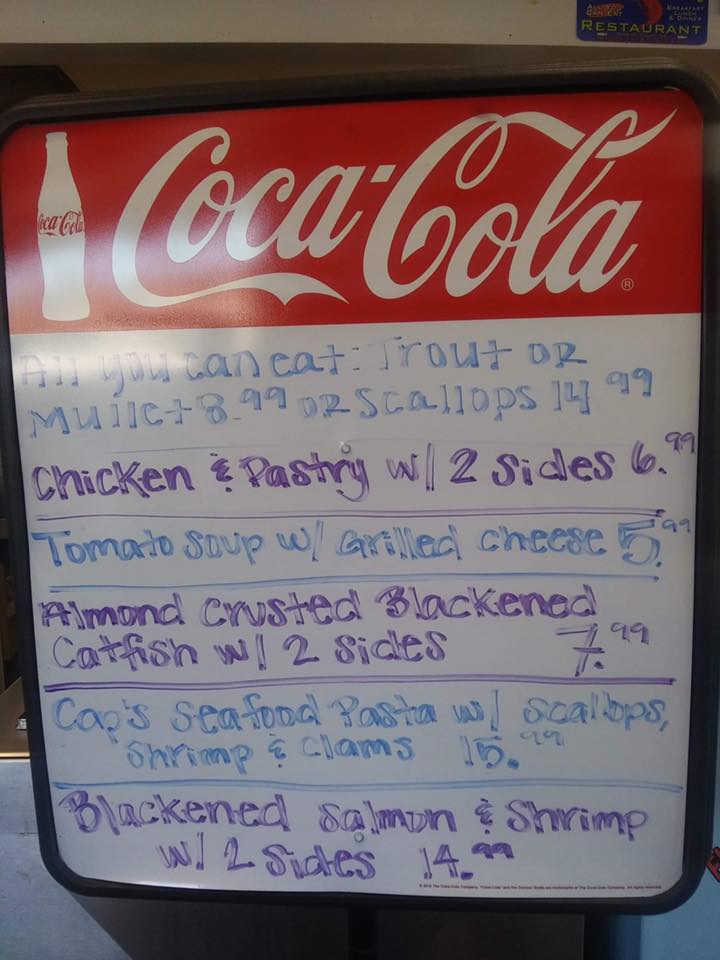 ALL YOU CAN EAT
BREAKFAST
LUNCH
& DINNER
RESTAURANT
Coca-Cola
Coca-Cola®
All you can eat: Trout OR
Mullet 8.99 OR Scallops 14 99
Chicken & Pastry w/ 2 Sides 6.99
Tomato Soup w/ Grilled Cheese 5.99
Almond Crusted Blackened
Catfish w/ 2 Sides 7.99
Cap's Seafood Pasta w/ Scallops,
Shrimp & Clams 15.99
Blackened Salmon & Shrimp
w/ 2 Sides 14.99